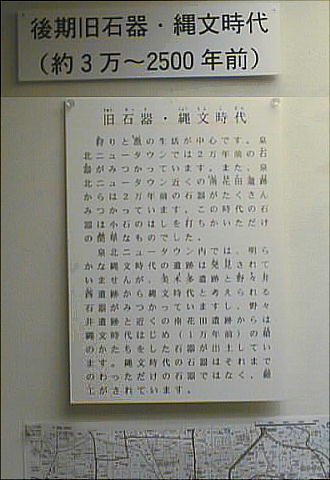 後期旧石器・縄文時代
(約3万〜2500年前)
旧石器・縄文時代
狩りと漁の生活が中心です。泉
北ニュータウンでは2万年前の石
器がみつかっています。また、泉
北ニュータウン近くの南花田遺跡
からは2万年前の石器がたくさん
みつかっています。この時代の石
器は小石のはしを打ちかいただけ
の簡単なものでした。
泉北ニュータウン内では、明ら
かな縄文時代の遺跡は発見されて
いませんが、美木多遺跡と野々井
西遺跡から縄文時代と考えられる
石器がみつかっていますし、野々
井遺跡と近くの南花田遺跡からは
縄文時代はじめ(1万年前)の
のかたちをした石器が出土してい
ます。縄文時代の石器はそれまで
のわっただけの石器ではなく、細
工がされています。